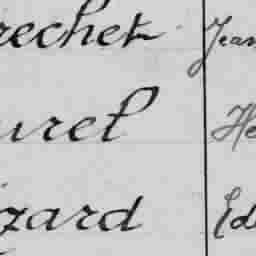 rechet Jean
urel He
zard Ed